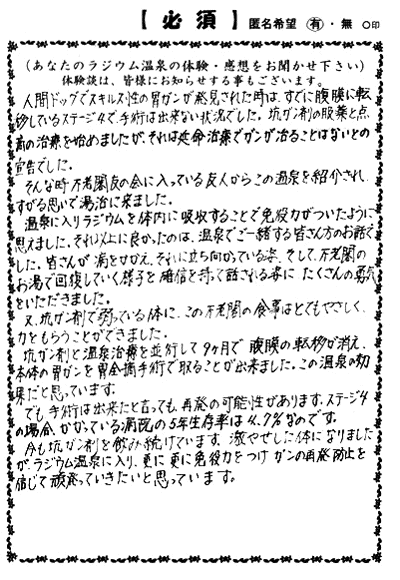 【必須】 匿名希望 有・無 ○印
(あなたのラジウム温泉の体験・感想をお聞かせ下さい)
体験談は、皆様にお知らせする事もございます。
人間ドッグでスキルス性の胃ガンが発見された時は、すでに腹膜に転
移しているステージ4で手術は出来ない状況でした。抗ガン剤の服薬と点
滴の治療を始めましたが、それは延命治療でガンが治ることはないとの
宣告でした。
そんな時不老閣友の会に入っている友人からこの温泉を紹介され、
すがる思いで湯治に来ました。
温泉に入りラジウムを体内に吸収することで免疫力がついたように
思えました。それ以上に良かったのは、温泉でご一緒する皆さん方のお話で
した。皆さんが病をかかえ、それに立ち向かっている姿、そして、不老閣の
お湯で回復していく様子を確信を持って話される姿にたくさんの勇気
をいただきました。
又、抗ガン剤で弱っている体に、この不老閣の食事はとてもやさしく、
力をもらうことができました。
抗ガン剤と温泉治療を並行して9ヶ月で腹膜の転移が消え、
本体の胃ガンを胃全摘手術で取ることが出来ました。この温泉の効
果だと思っています。
でも手術は出来たと言っても、再発の可能性があります。ステージ4
の場合、かかっている病院の5年生存率は4.7%なのです。
今も抗ガン剤を飲み続けています。激やせした体になりました
が、ラジウム温泉に入り、更に更に免疫力をつけガンの再発防止を
信じて頑張っていきたいと思っています。